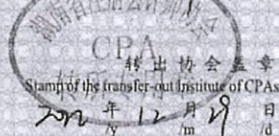 湖南省注册会计师协会
CPA
转出协会盖章
Stamp of the transfer-out Institute of CPAs
年 12 月 29 日
/y /m /d